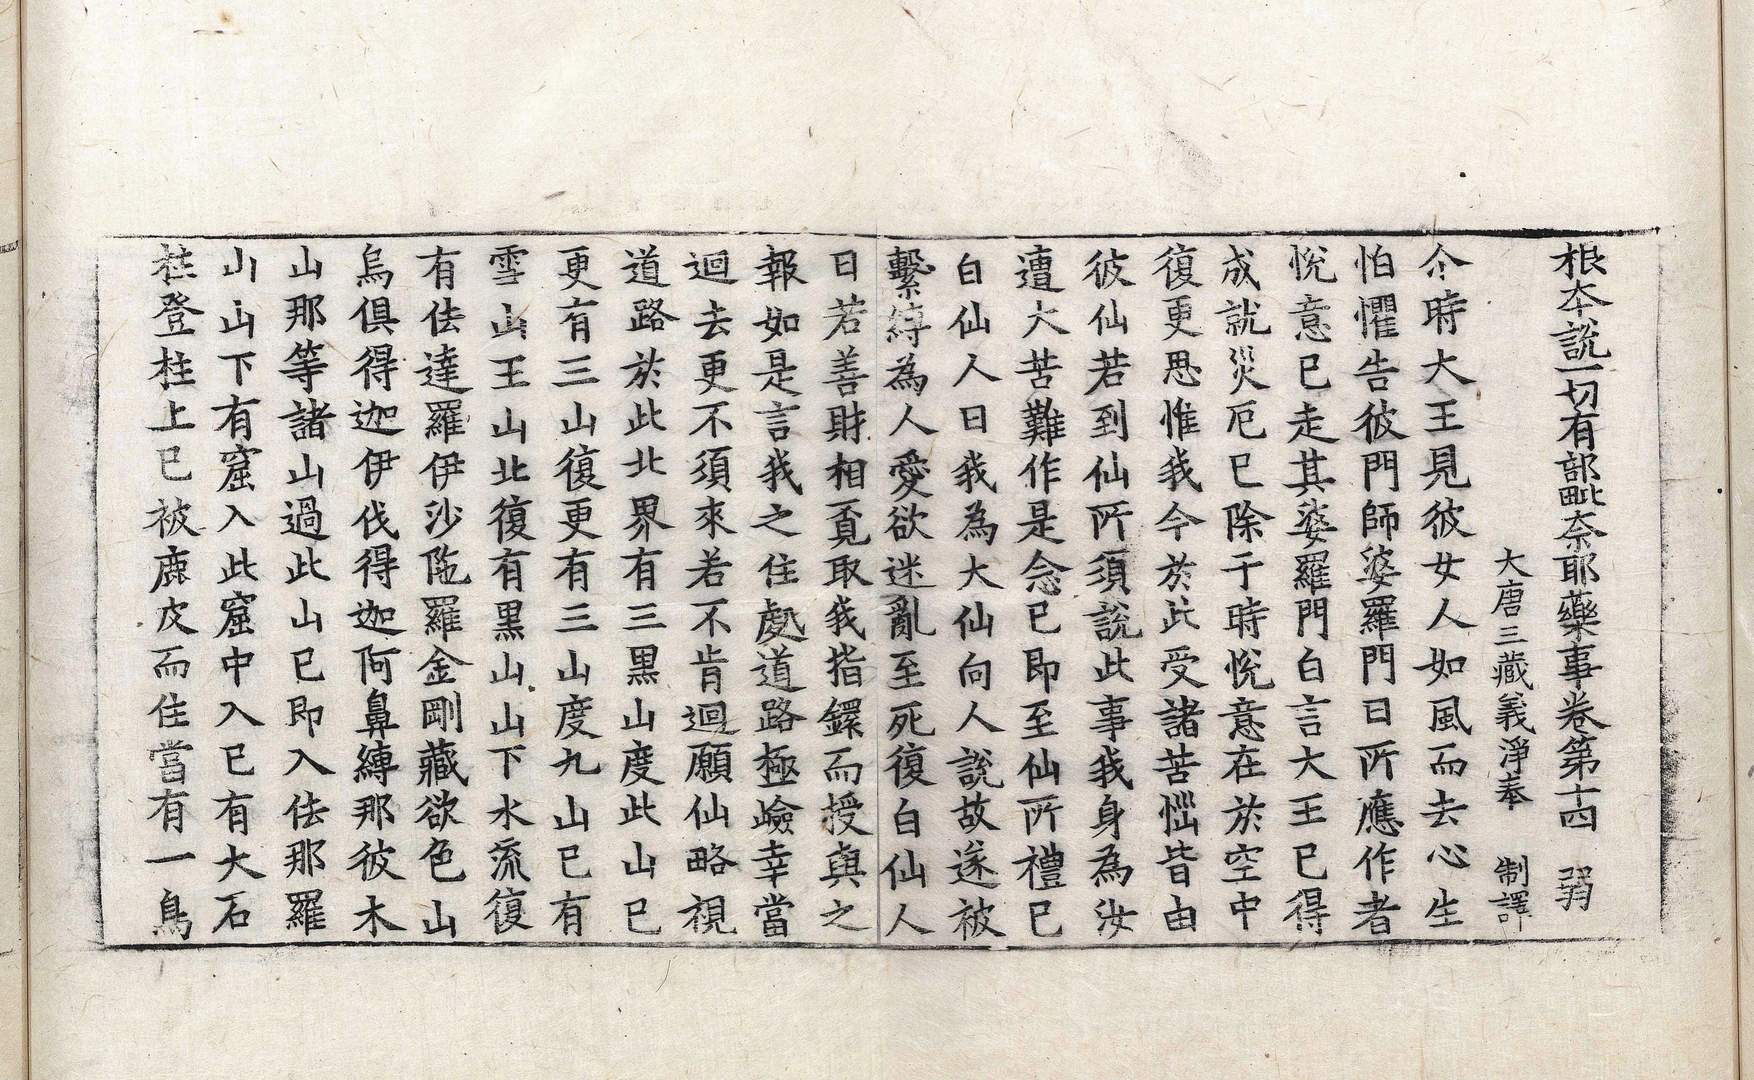 根本說一切有部毗奈耶藥事卷第十四 弱
大唐三藏義淨奉 制譯
尒時大王見彼女人如風而去心生
怕懼告彼門師婆羅門曰所應作者
悅意已走其婆羅門白言大王已得
成就災厄已除于時悅意在於空中
復更思惟我今於此受諸苦惱皆由
彼仙若到仙所須說此事我身為汝
遭大苦難作是念已即至仙所禮已
白仙人曰我為大仙向人說故遂被
繫縛為人愛欲迷亂至死復白仙人
曰若善財相覔取我指鐶而授與之
報如是言我之住處道路極嶮幸當
迴去更不須來若不肯迴願仙略視
道路於此北界有三黑山度此山已
更有三山復更有三山度九山已有
雪山王山北復有黑山山下水流復
有佉達羅伊沙陁羅金剛藏欲色山
烏俱得迦伊伐得迦阿鼻縛那彼木
山那等諸山過此山已即入佉那羅
山山下有窟入此窟中入已有大石
柱登柱上已被鹿皮而住當有一鳥